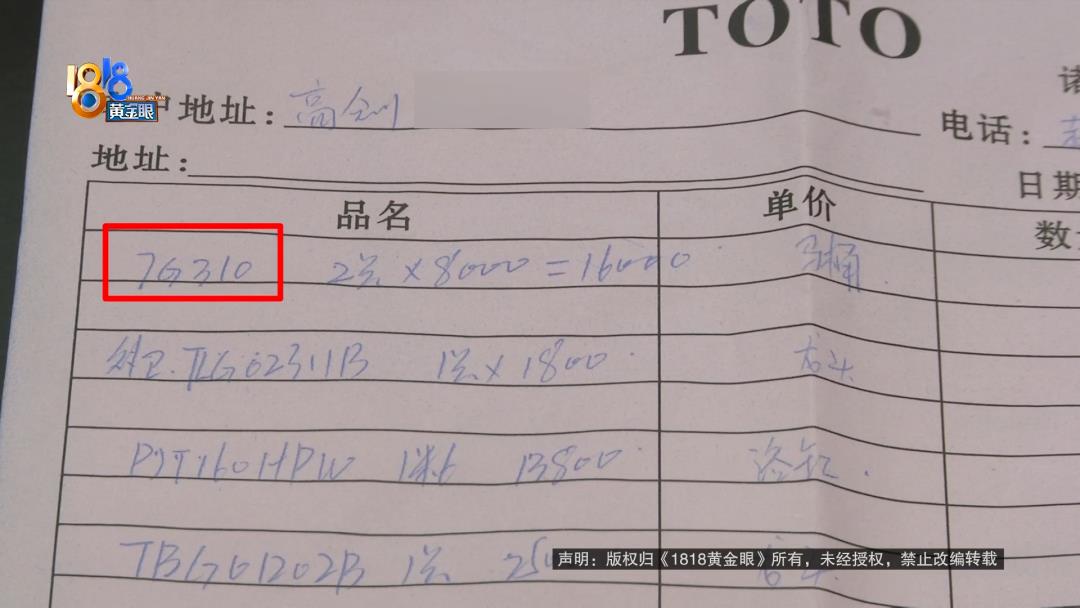 TOTO
1818
黄金眼
户地址：高
电话：
地址：
日期
品名 单价 数
7G310 2套×8000=16000 马桶
TLG02311B 1套×1800 龙头
1米6 13800 浴缸
TBG01202B 1套 250 龙头
声明：版权归《1818黄金眼》所有，未经授权，禁止改编转载